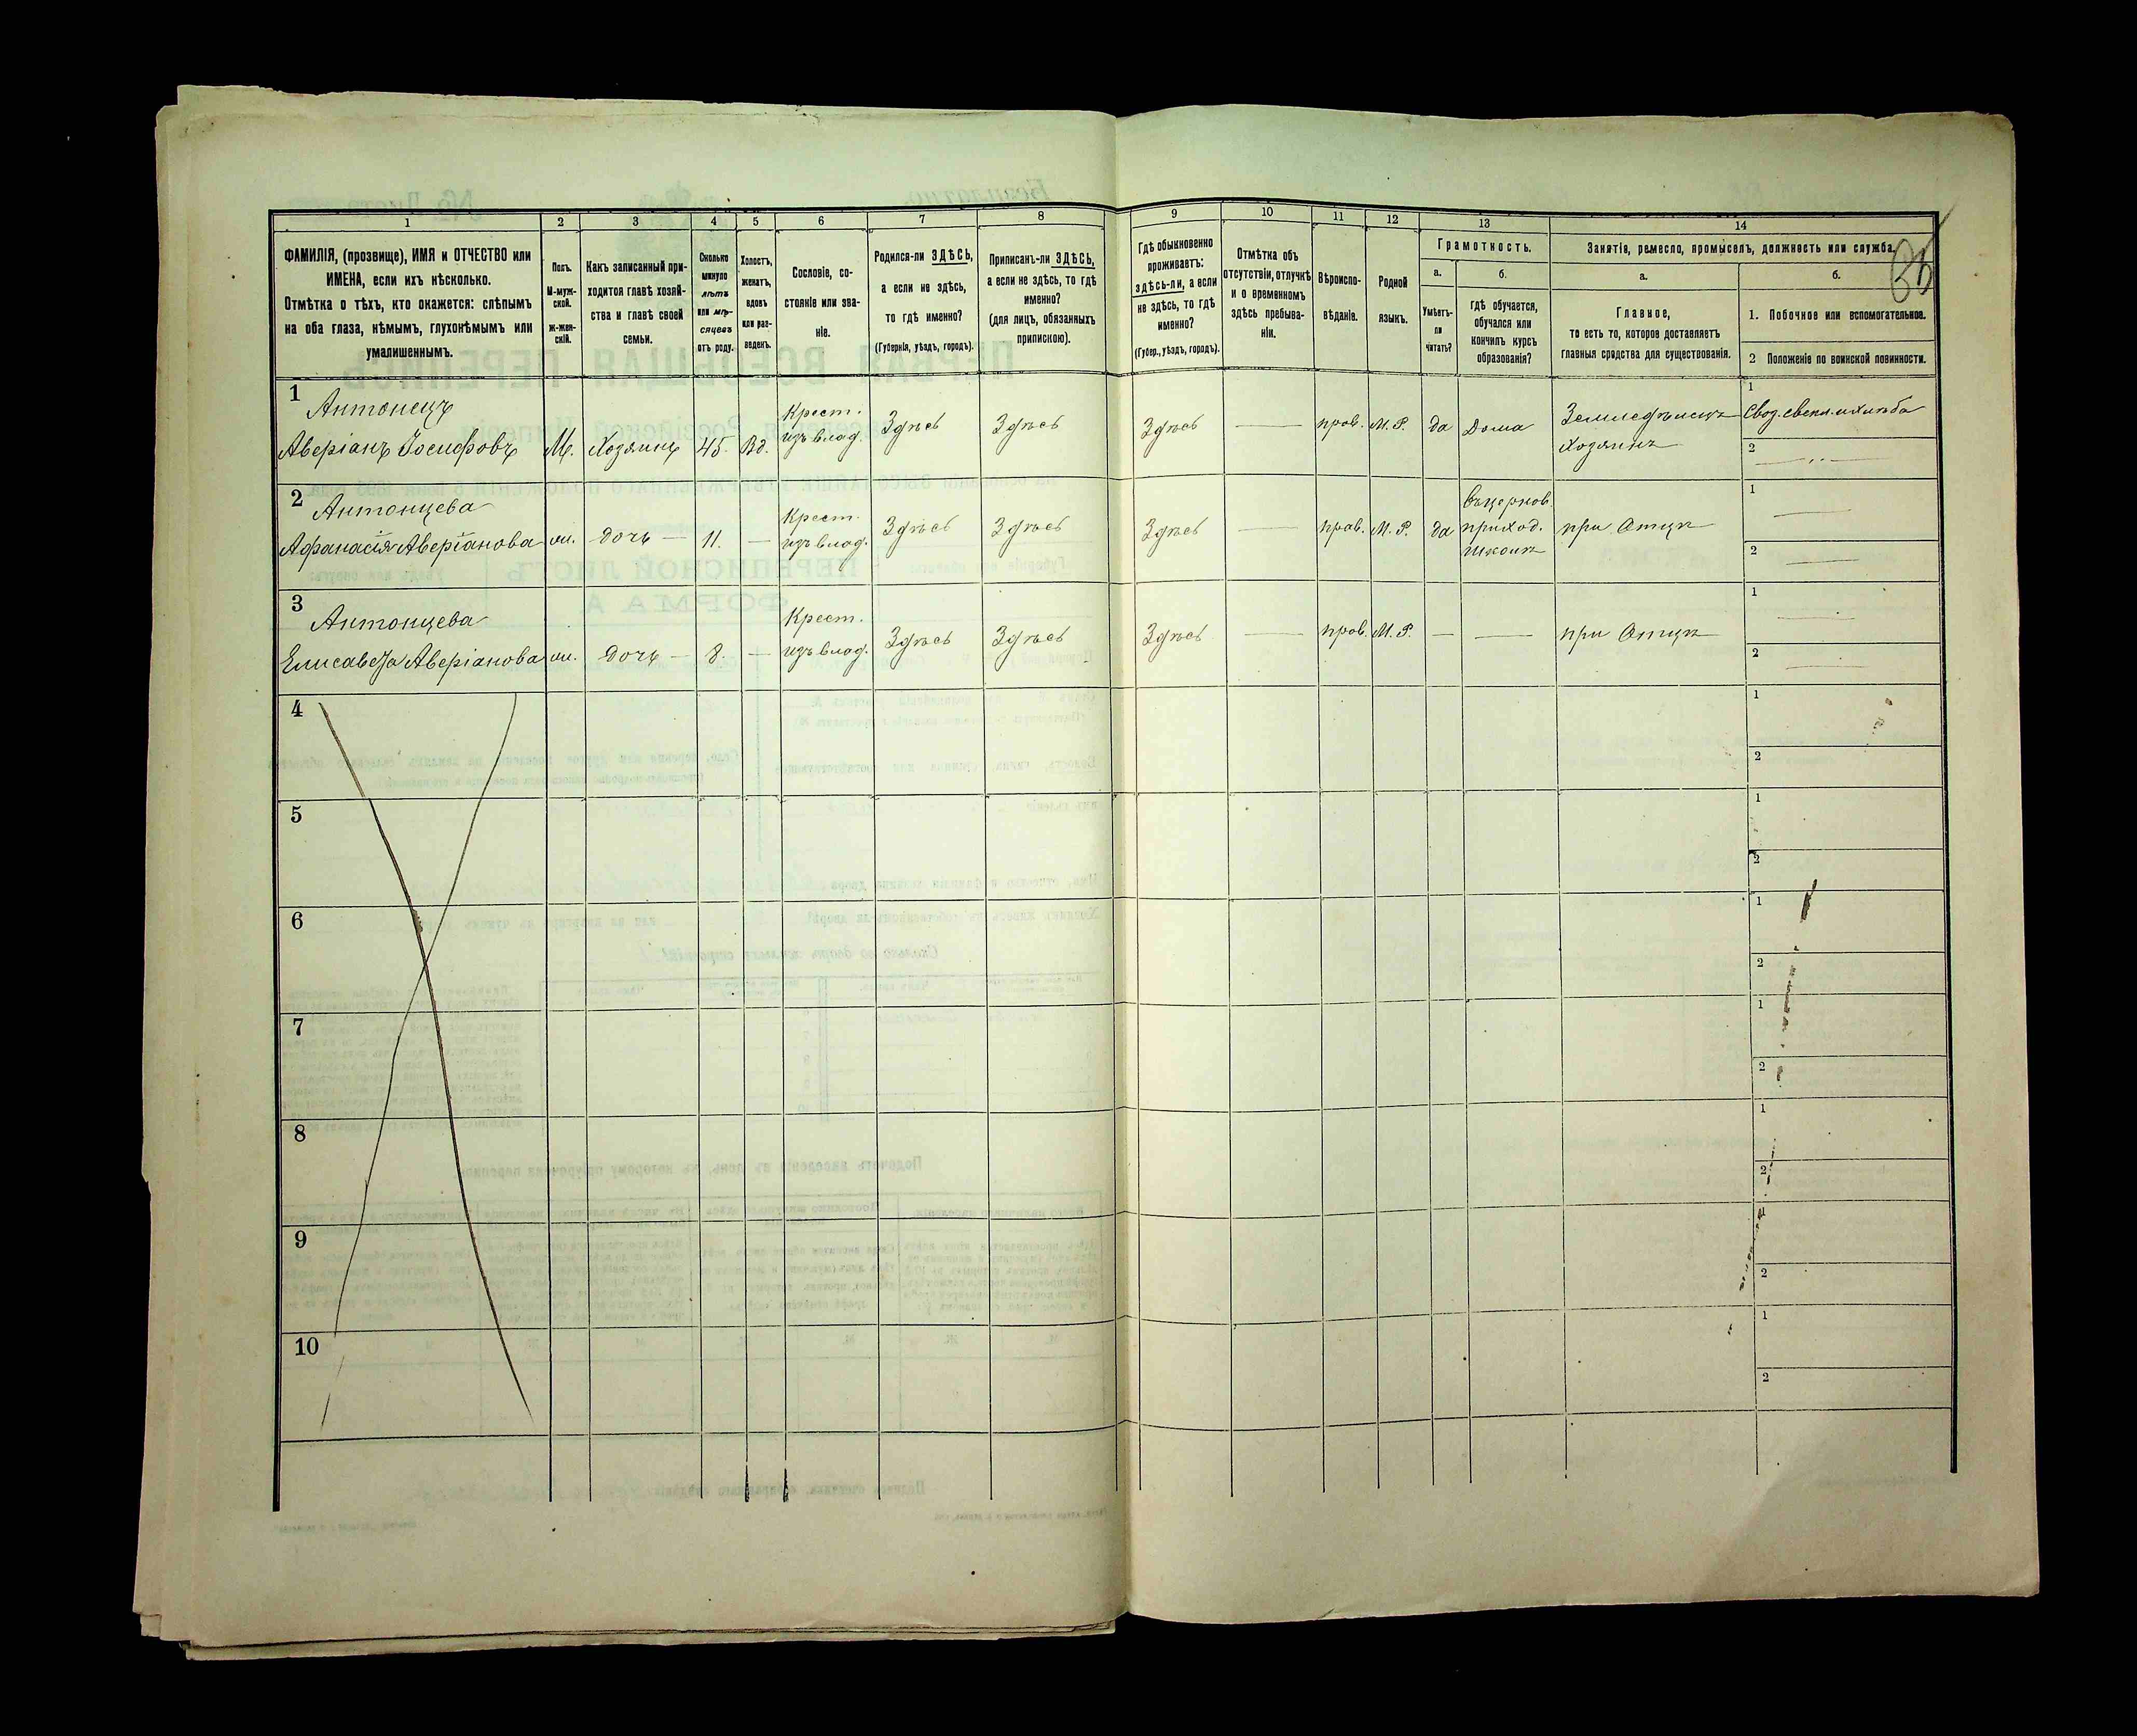 1 2 3 4 5 6 7 8 9 10 11 12 13 14
ФАМИЛІЯ, (прозвище), ИМЯ и ОТЧЕСТВО или
ИМЕНА, если ихъ нѣсколько.
Отмѣтка о тѣхъ, кто окажется: слѣпымъ
на оба глаза, нѣмымъ, глухонѣмымъ или
умалишеннымъ.
Полъ.
М-муж-
ской.
ж-жен-
скій.
Какъ записанный при-
ходится главѣ хозяй-
ства и главѣ своей
семьи.
Сколько
минуло
лѣтъ
или мѣ-
сяцевъ
отъ роду.
Холостъ,
женатъ,
вдовъ
или раз-
веденъ.
Сословіе, со-
стояніе или зва-
ніе.
Родился-ли ЗДѢСЬ,
а если не здѣсь,
то гдѣ именно?
(Губернія, уѣздъ, городъ).
Приписанъ-ли ЗДѢСЬ,
а если не здѣсь, то гдѣ
именно?
(для лицъ, обязанныхъ
припискою).
Гдѣ обыкновенно
проживаетъ:
здѣсь-ли, а если
не здѣсь, то гдѣ
именно?
(Губер., уѣздъ, городъ).
Отмѣтка объ
отсутствіи, отлучкѣ
и о временномъ
здѣсь пребыва-
ніи.
Вѣроиспо-
вѣданіе.
Родной
языкъ.
Грамотность.
а.
Умѣетъ-
ли
читать?
б.
Гдѣ обучается,
обучался или
кончилъ курсъ
образованія?
Занятія, ремесло, промыселъ, должность или служба.
а.
Главное,
то есть то, которое доставляетъ
главныя средства для существованія.
б.
1. Побочное или вспомогательное.
2 Положеніе по воинской повинности.
1
Антонецъ
Аверіанъ Іосифовъ
М.
Хозяинъ
45.
Вд.
Крест.
изъ влад.
Здѣсь
Здѣсь
Здѣсь
прав.
М. Р.
да
Дома
Земледѣлецъ
Хозяинъ
1
2
2
Антонцева
Афанасія Аверіанова
дочь
11.
Крест.
изъ влад.
Здѣсь
Здѣсь
Здѣсь
прав.
М. Р.
да
въ церков.
приход.
школѣ
при Отцѣ
1
2
3
Антонцева
Елисавета Аверіанова
дочь
8.
Крест.
изъ влад.
Здѣсь
Здѣсь
Здѣсь
прав.
М. Р.
при Отцѣ
1
2
4
1
2
5
1
2
6
1
2
7
1
2
8
1
2
9
1
2
10
1
2